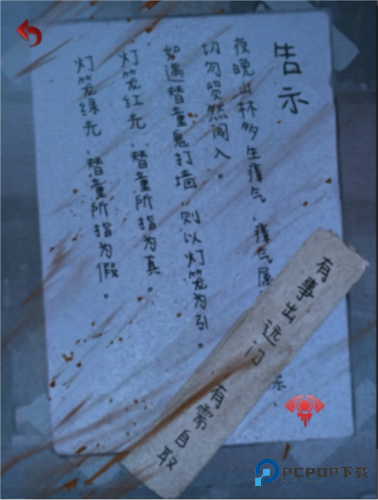 告示
夜晚山林多生瘴气，瘴气
切勿贸然闯入。
如遇替童鬼打墙，则以灯笼为引。
灯笼红光，替童所指为真。
灯笼绿光，替童所指为假。
有事出远门
有需自取
PCPOP下载